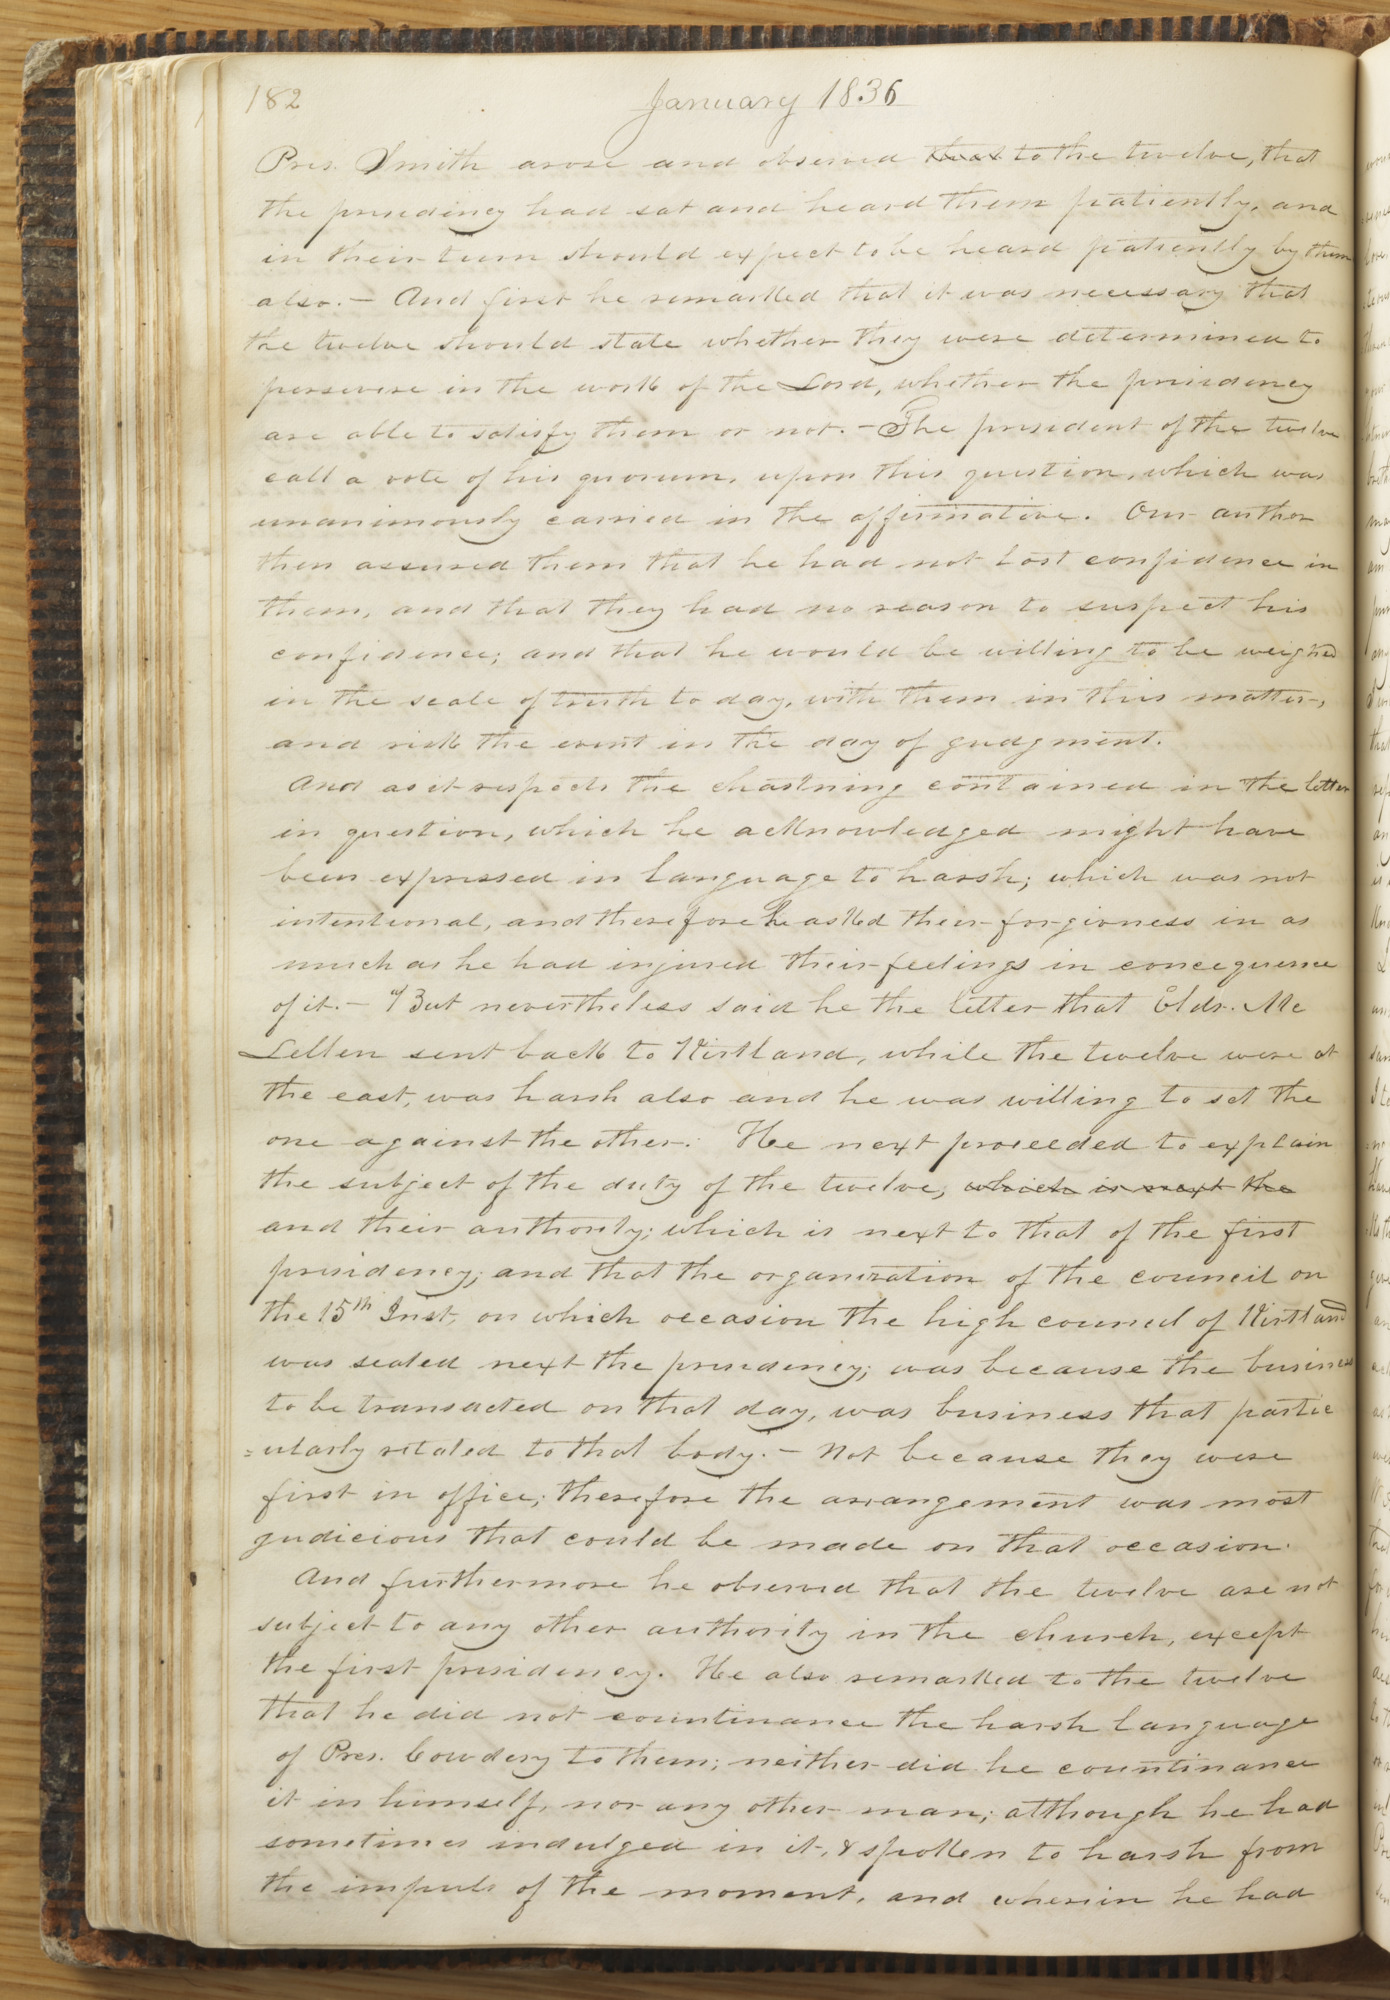 182
January 1836
Pres. Smith arose and observed that to the twelve, that
the presidency had sat and heard them patiently, and
in their turn should expect to be heard patiently by them
also.— And first he remarked that it was necessary that
the twelve should state whether they were determined to
persevere in the work of the Lord, whether the presidency
are able to satisfy them or not.— The president of the twelve
call a vote of his quorum, upon this question, which was
unanimously carried in the affirmative. Our author
then assured them that he had not lost confidence in
them, and that they had no reason to suspect his
confidence; and that he would be willing to be weighed
in the scale of truth to day, with them in this matter,
and risk the event in the day of judgment.
And as it respects the chastning contained in the letter
in question, which he acknowledged might have
been expressed in language to harsh; which was not
intentional, and therefore he asked their forgivness in as
much as he had injured their feelings in concequence
of it.— "But nevertheless said he the letter that Eldr. Mc
Lellen sent back to Kirtland, while the twelve were at
the east, was harsh also and he was willing to set the
one against the other. He next proceeded to explain
the subject of the duty of the twelve, which is next the
and their authority; which is next to that of the first
presidency; and that the organization of the council on
the 15th Inst, on which occasion the high council of Kirtland
was seated next the presidency; was because the business
to be transacted on that day, was business that partic
=ularly related to that body.— Not because they were
first in office; therefore the arrangement was most
judicious that could be made on that occasion.
And furthermore he observed that the twelve are not
subject to any other authority in the church, except
the first presidency. He also remarked to the twelve
that he did not countinance the harsh language
of Pres. Cowdery to them; neither did he countinance
it in himself, nor any other man; although he had
sometimes indulged in it, & spoken to harsh from
the impuls of the moment, and wherein he had